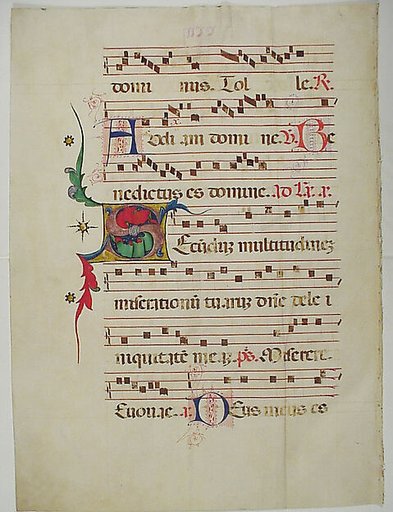 domi nus. Tol le. R.
Audi am domi ne. V. Be
nedictus es domine. ad Lx. x.
Secūdus multitudinez
miserationū tuarus dñe dele i
niquitatē meaz. ps. Miserere.
Euouae. a. Deus meus es